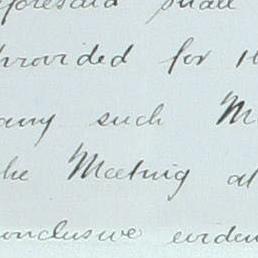 shall
provided for
any such M
the Meeting at
conclusive eviden